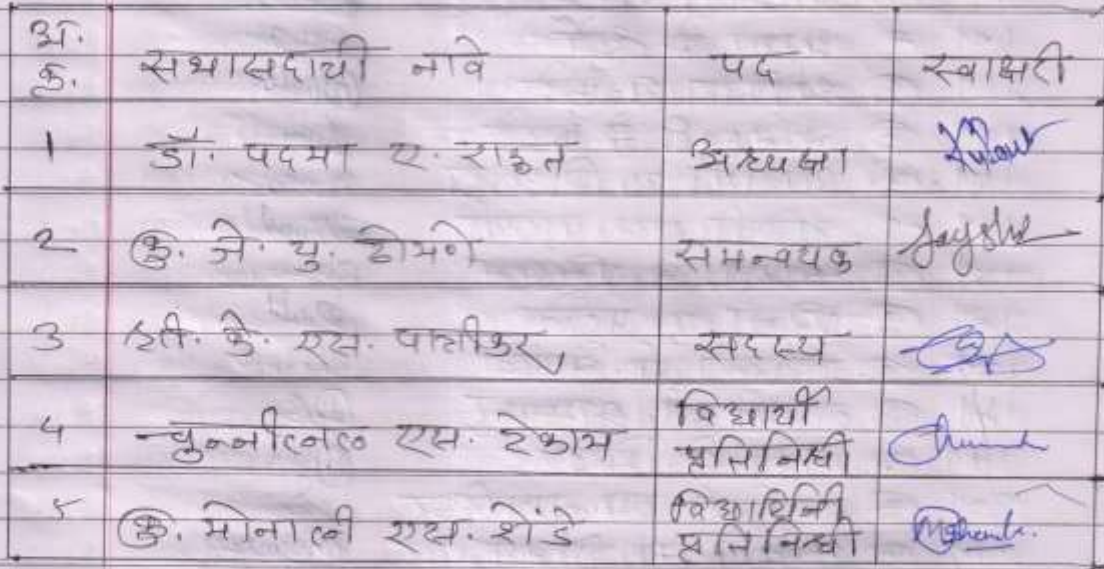 अ.
क्र. सभासदाची नावे पद स्वाक्षरी
1 डॉ. पदमा ए. राऊत अध्यक्षा
2 कु. जे. यु. ठोमणे समन्वयक
3 के. एस. सदस्य
4 चुन्नीलाल एस. टेकाम विद्यार्थी
प्रतिनिधी
5 कु. मोनाली एस. शेंडे विद्यार्थिनी
प्रतिनिधी